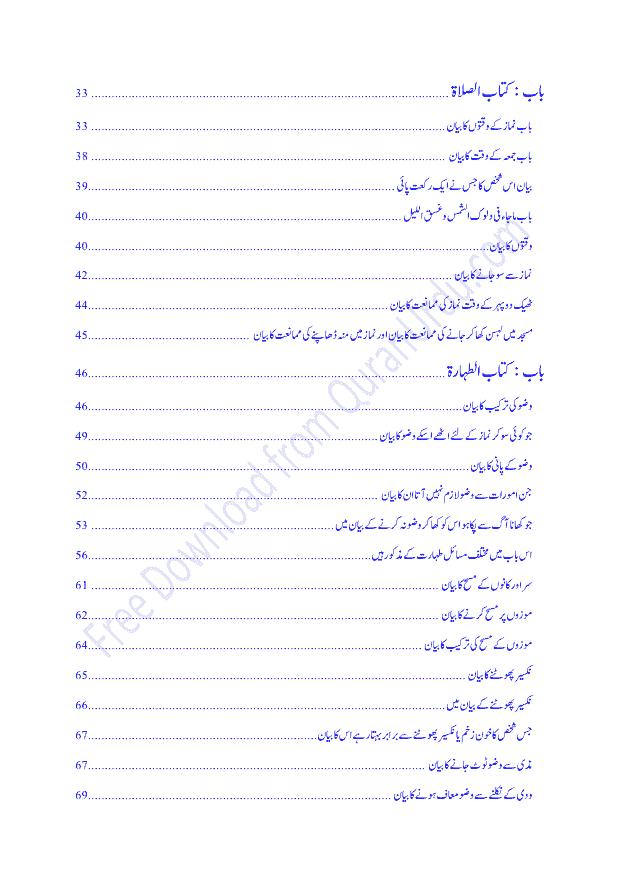 باب : کتاب الصلاۃ 33
باب نماز کے وقتوں کا بیان 33
باب جمعہ کے وقت کا بیان 38
بیان اس شخص کا جس نے ایک رکعت پائی 39
باب ماجاء فی دلوک الشمس وغسق اللیل 40
وقتوں کا بیان 40
نماز سے سو جانے کا بیان 42
ٹھیک دوپہر کے وقت نماز کی ممانعت کا بیان 44
مسجد میں لہسن کھا کر جانے کی ممانعت کا بیان اور نماز میں منہ ڈھاپنے کی ممانعت کا بیان 45
باب : کتاب الطہارۃ 46
وضو کی ترکیب کا بیان 46
جو کوئی سو کر نماز کے لئے اٹھے اسکے وضو کا بیان 49
وضو کے پانی کا بیان 50
جن امورات سے وضو لازم نہیں آتا ان کا بیان 52
جو کھانا آگ سے پکا ہو اس کو کھا کر وضو نہ کرنے کے بیان میں 53
اس باب میں مختلف مسائل طہارت کے مذکور ہیں 56
سر اور کانوں کے مسح کا بیان 61
موزوں پر مسح کرنے کا بیان 62
موزوں کے مسح کی ترکیب کا بیان 64
نکسیر پھوٹنے کا بیان 65
نکسیر پھوٹنے کے بیان میں 66
جس شخص کا خون زخم یا نکسیر پھوٹنے سے برابر بہتا رہے اس کا بیان 67
مذی سے وضو ٹوٹ جانے کا بیان 67
ودی کے نکلنے سے وضو معاف ہونے کا بیان 69
Free Download from QuranUrdu.com